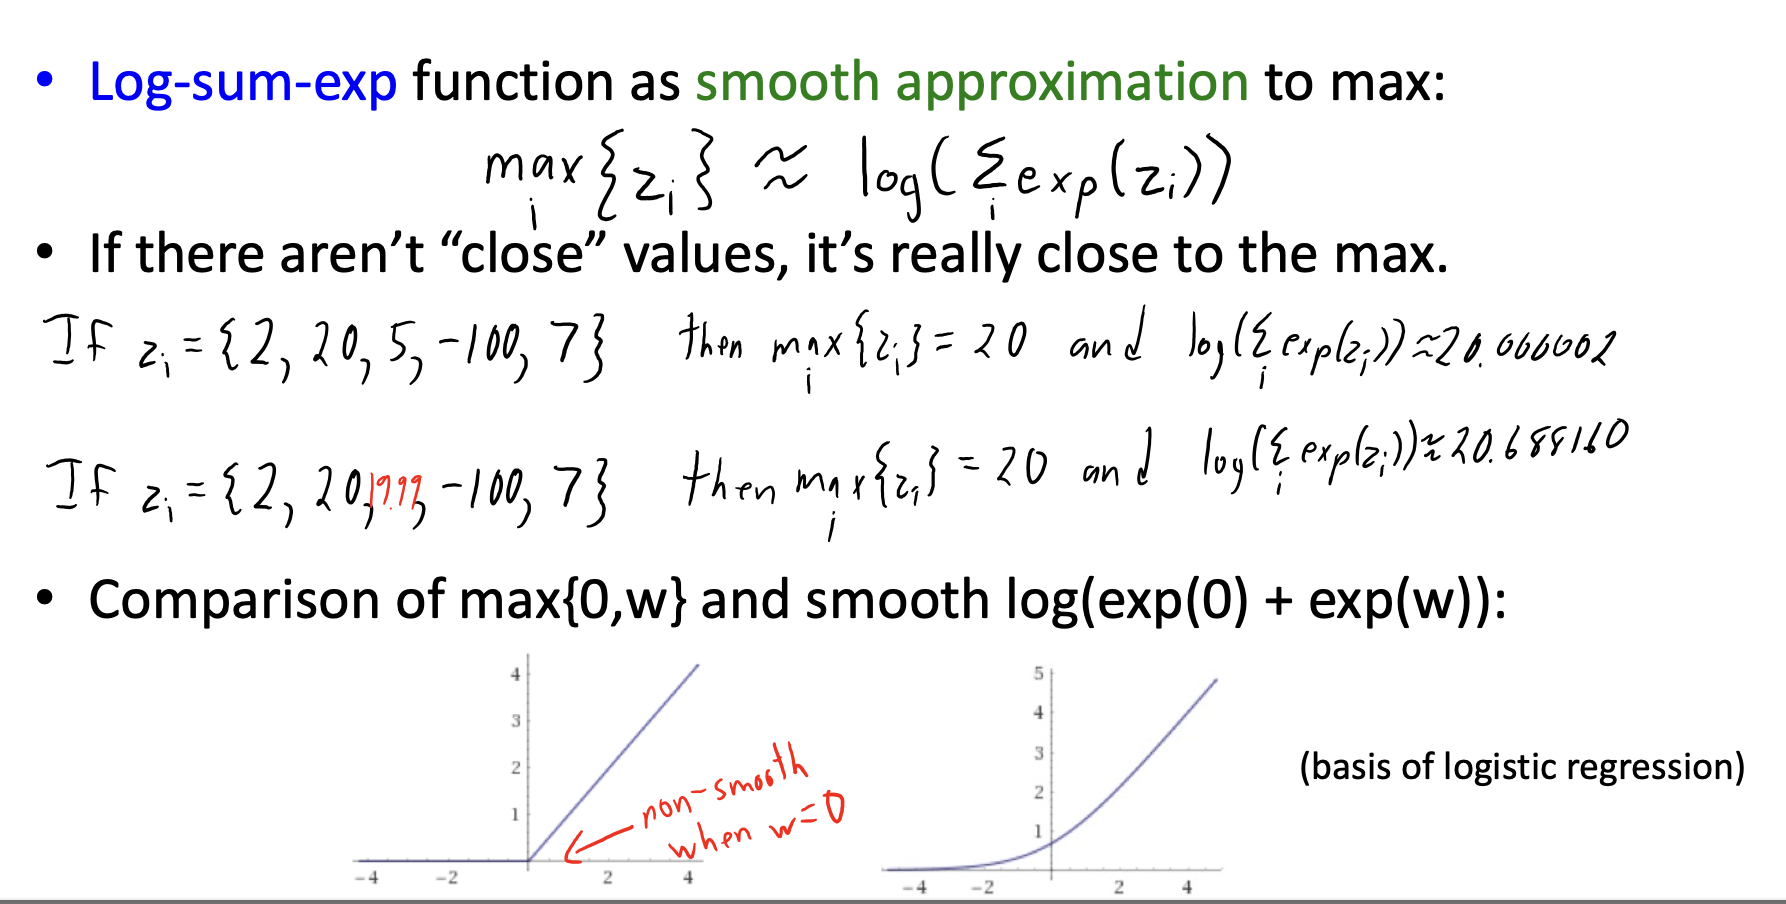 • Log-sum-exp function as smooth approximation to max:
max_i {z_i} ≈ log(Σ_i exp(z_i))
• If there aren't “close” values, it's really close to the max.
If z_i = {2, 20, 5, -100, 7} then max_i {z_i} = 20 and log(Σ_i exp(z_i)) ≈ 20.000002
If z_i = {2, 20, 19.99, -100, 7} then max_i {z_i} = 20 and log(Σ_i exp(z_i)) ≈ 20.688160
• Comparison of max{0,w} and smooth log(exp(0) + exp(w)):
4
3
2
1
-4 -2 2 4
non-smooth
when w=0
5
4
3
2
1
-4 -2 2 4
(basis of logistic regression)